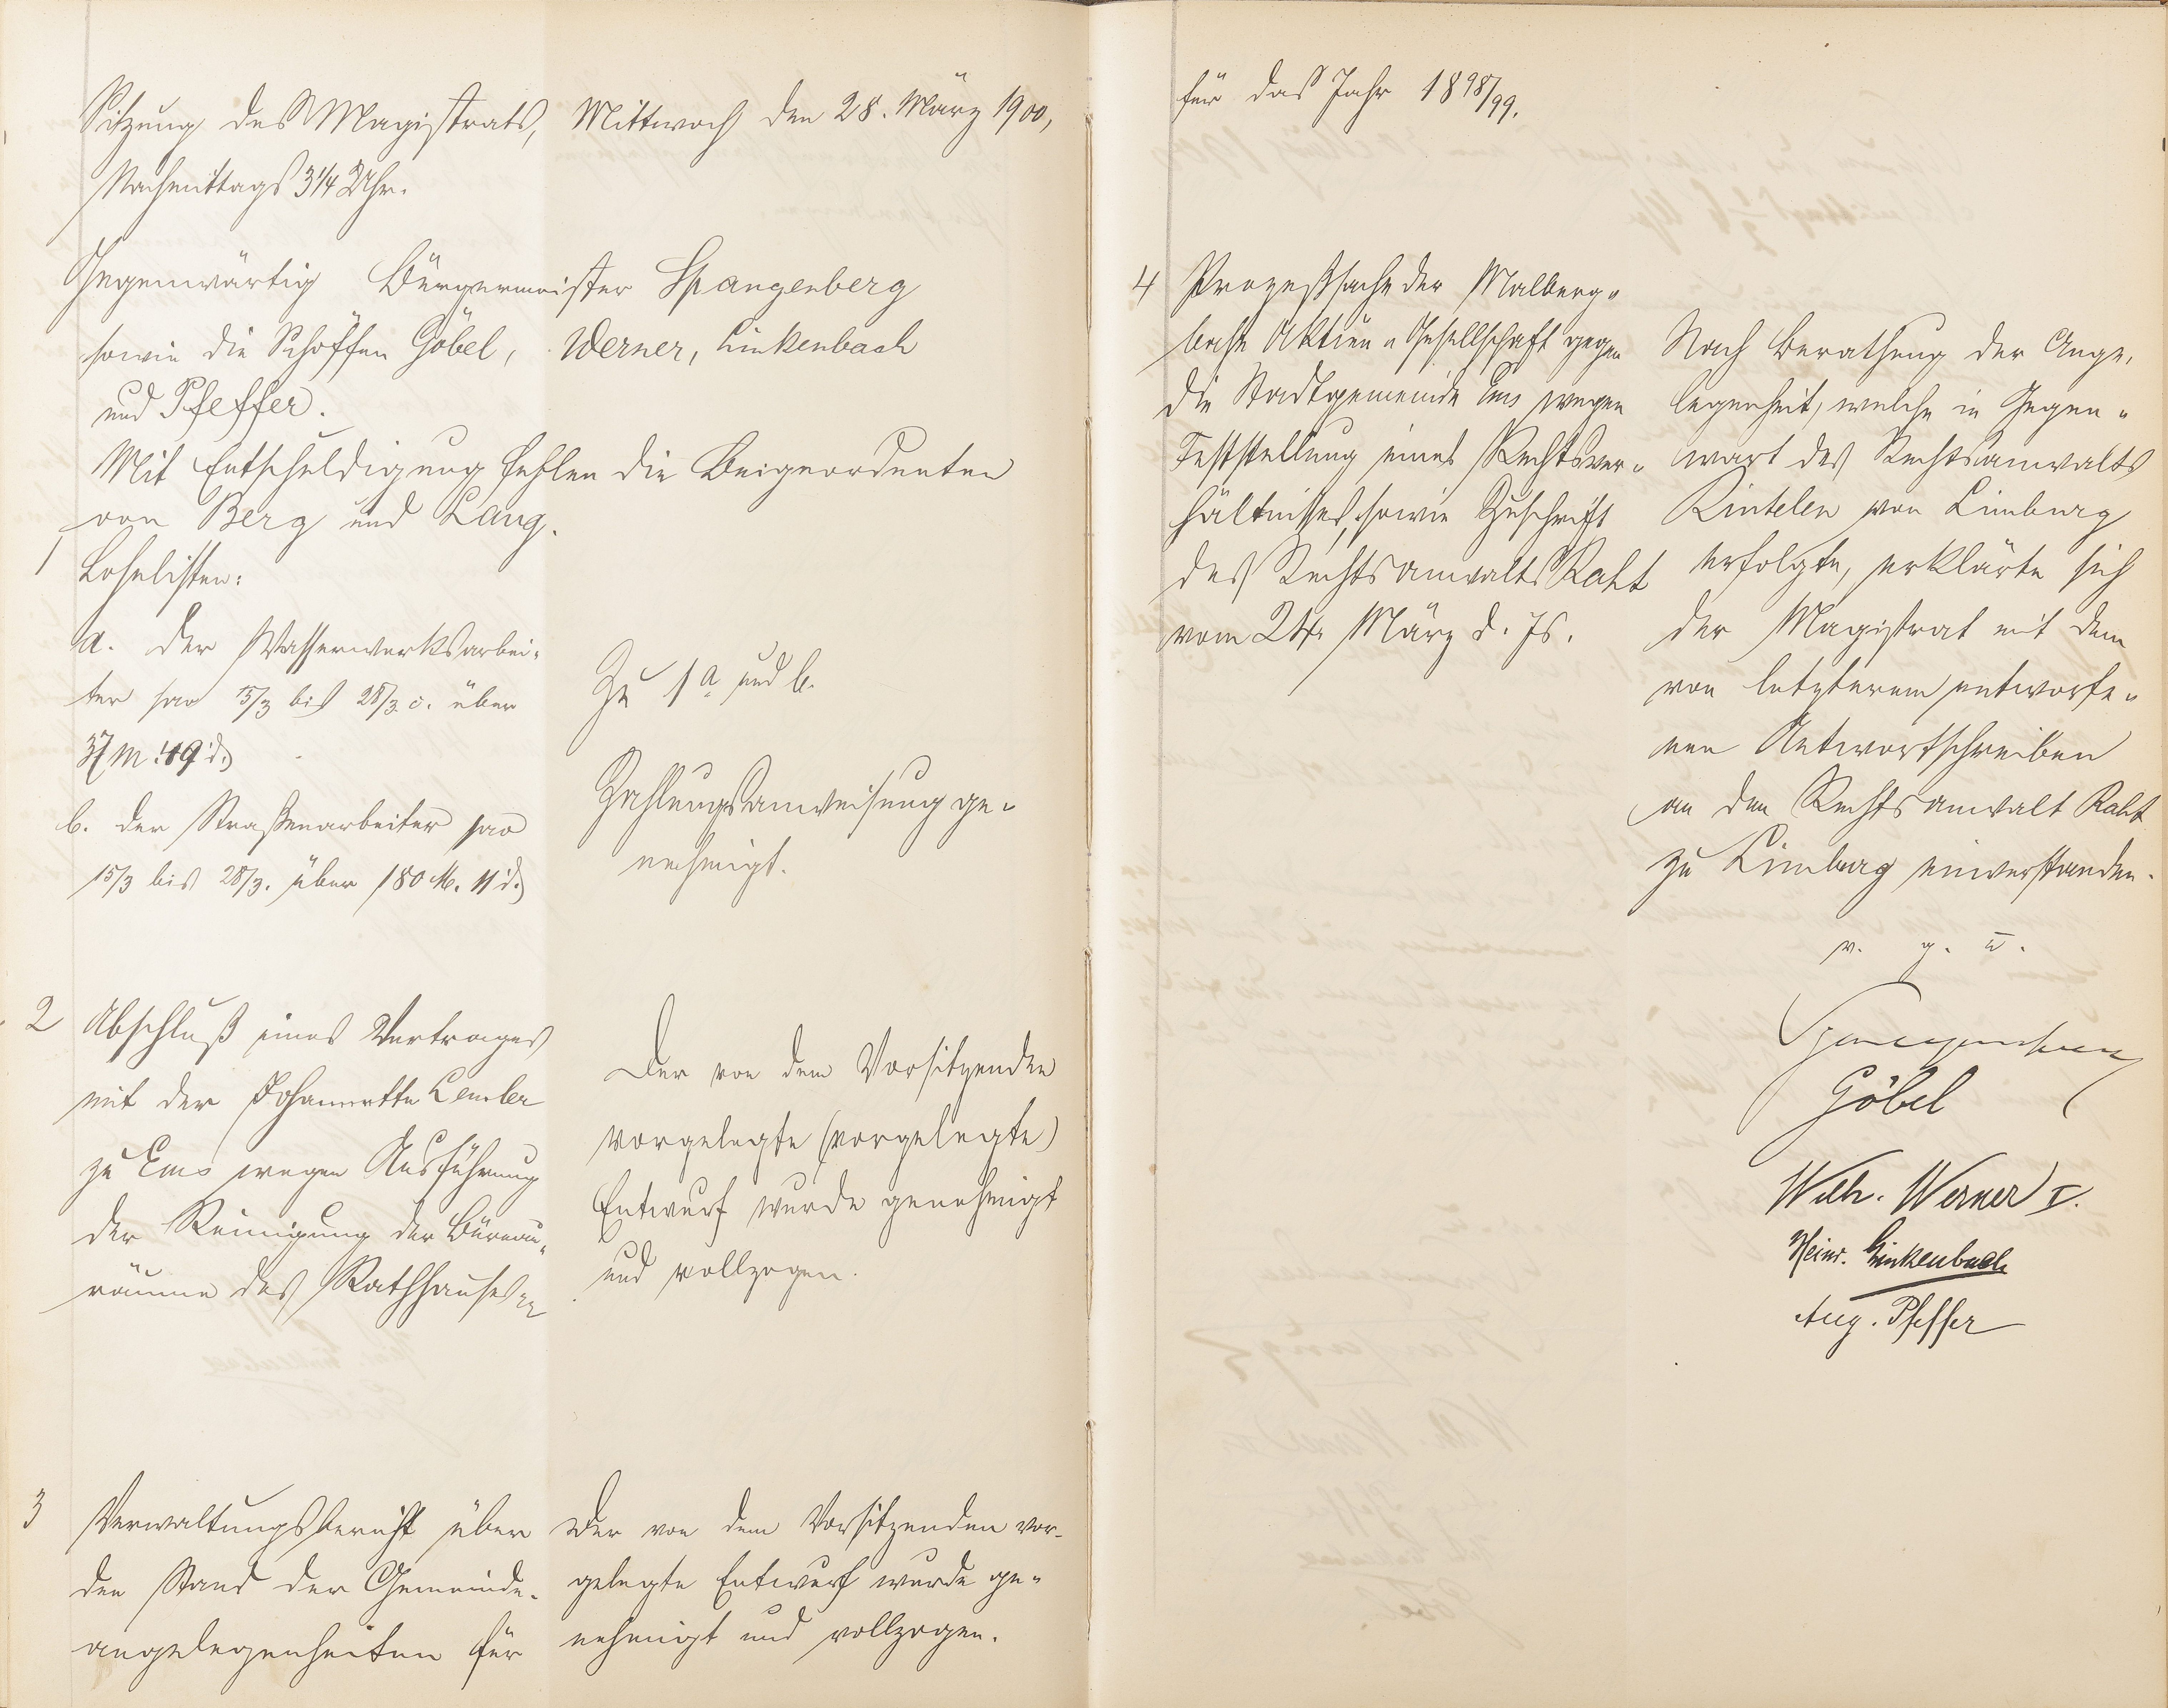 Sitzung des Magistrats, Mittwoch den 28. März 1900,
Nachmittags 3 1/4 Uhr.
Gegenwärtig Bürgermeister Spangenberg
sowie die Schöffen Göbel, Werner, Linkenbach
und Pfeffer.
Mit Entschuldigung fehlen die Beigeordneten
von Berg und Lang.
1 Lohnlisten:
a. der Wasserwerksarbei-
ter pro 15/3 bis 28/3. c. über
37 M. 49 d.
b. der Straßenarbeiter pro
15/3 bis 28/3. über 180 M. 11 d.
Zu 1 a und b.
Zahlungsanweisung ge-
nehmigt.
2 Abschluß eines Vertrages
mit der Johannette
zu Ems wegen Ausführung
der Reinigung der Büreau-
räume des Rathhauses
Der von dem Vorsitzenden
vorgelegte (vorgelegte)
Entwurf wurde genehmigt
und vollzogen.
3 Verwaltungsbericht über
den Stand der Gemeinde-
angelegenheiten für
Der von dem Vorsitzenden vor-
gelegte Entwurf wurde ge-
nehmigt und vollzogen.
für das Jahr 1898/99.
4 Prozeßsache der Malberg-
bahn Aktien-Gesellschaft gegen
die Stadtgemeinde Ems wegen
Feststellung eines Rechtsver-
hältnisses, sowie Zuschrift
des Rechtsanwalts Raht
vom 24. März d. Js.
Nach Berathung der Ange-
legenheit, welche in Gegen-
wart des Rechtsanwalts
Rintelen von Limburg
erfolgte, erklärte sich
der Magistrat mit dem
von letzterem entworfe-
nen Antwortschreiben
an den Rechtsanwalt Raht
zu Limburg einverstanden.
v. g. u.
Spangenberg
Göbel
Wilh. Werner I.
Heinr. Linkenbach
Aug. Pfeffer